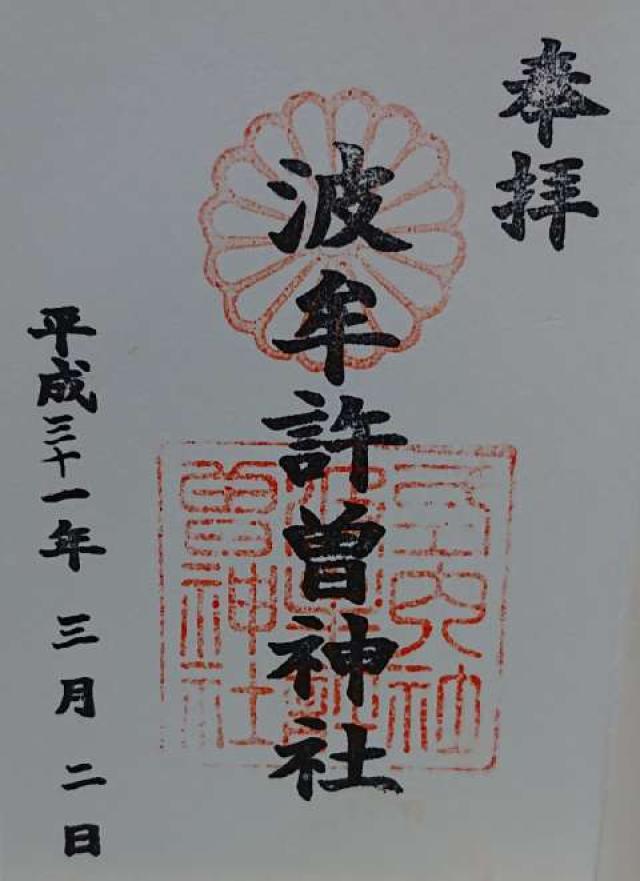 奉拝
波牟許曽神社
平成三十一年 三月 二日